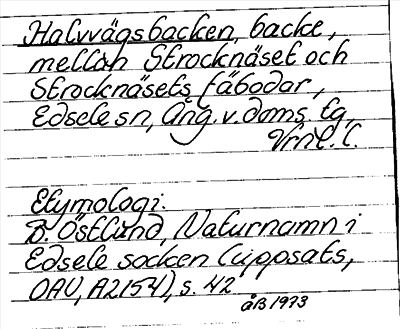 Halvvägsbacken, backe,
mellan Strocknäset och
Strocknäsets fäbodar,
Edsele sn, Ång. v. doms. tg,
Vrnl. l.
Etymologi:
B. Östlund, Naturnamn i
Edsele socken (uppsats,
OAU, A2154), s. 42
åB 1973